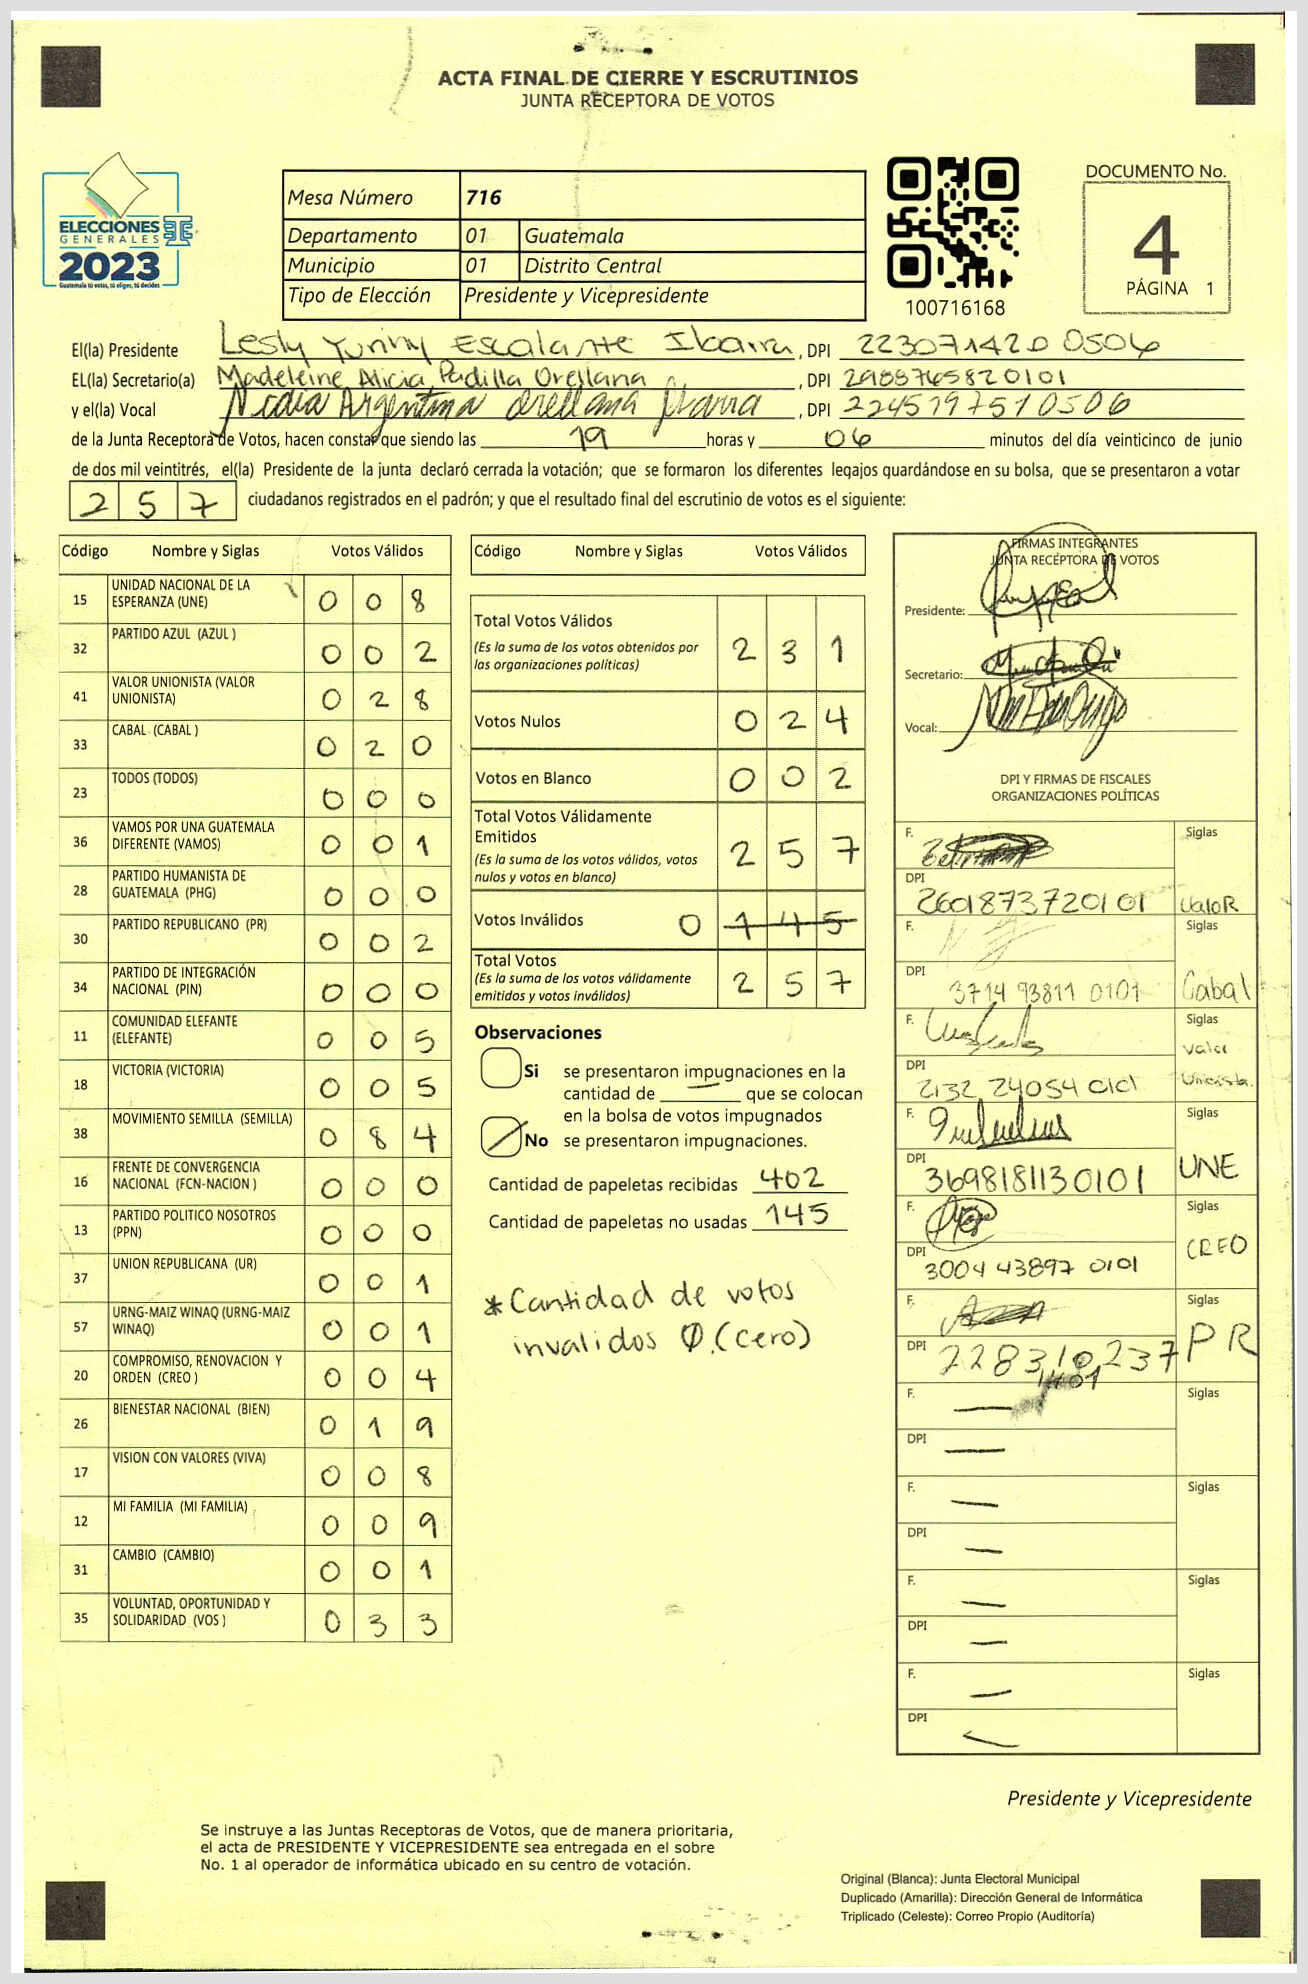 ACTA FINAL DE CIERRE Y ESCRUTINIOS
JUNTA RECEPTORA DE VOTOS
ELECCIONES
GENERALES
2023
Guatemala tú votas, tú eliges, tú decides
Mesa Número 716
Departamento 01 Guatemala
Municipio 01 Distrito Central
Tipo de Elección Presidente y Vicepresidente
100716168
DOCUMENTO No.
4
PÁGINA 1
El(la) Presidente Lesly Yuriny Escalante Ibarra, DPI 223071420 0506
EL(la) Secretario(a) Madeleine Alicia Padilla Orellana, DPI 2988765820101
y el(la) Vocal Nidia Argentina Orellana Ibarra, DPI 2245797510506
de la Junta Receptora de Votos, hacen constar que siendo las 19 horas y 06 minutos del día veinticinco de junio
de dos mil veintitrés, el(la) Presidente de la junta declaró cerrada la votación; que se formaron los diferentes legajos guardándose en su bolsa, que se presentaron a votar
257 ciudadanos registrados en el padrón; y que el resultado final del escrutinio de votos es el siguiente:
Código Nombre y Siglas Votos Válidos
15 UNIDAD NACIONAL DE LA ESPERANZA (UNE) 0 0 8
32 PARTIDO AZUL (AZUL ) 0 0 2
41 VALOR UNIONISTA (VALOR UNIONISTA) 0 2 8
33 CABAL (CABAL ) 0 2 0
23 TODOS (TODOS) 0 0 0
36 VAMOS POR UNA GUATEMALA DIFERENTE (VAMOS) 0 0 1
28 PARTIDO HUMANISTA DE GUATEMALA (PHG) 0 0 0
30 PARTIDO REPUBLICANO (PR) 0 0 2
34 PARTIDO DE INTEGRACIÓN NACIONAL (PIN) 0 0 0
11 COMUNIDAD ELEFANTE (ELEFANTE) 0 0 5
18 VICTORIA (VICTORIA) 0 0 5
38 MOVIMIENTO SEMILLA (SEMILLA) 0 8 4
16 FRENTE DE CONVERGENCIA NACIONAL (FCN-NACION ) 0 0 0
13 PARTIDO POLITICO NOSOTROS (PPN) 0 0 0
37 UNION REPUBLICANA (UR) 0 0 1
57 URNG-MAIZ WINAQ (URNG-MAIZ WINAQ) 0 0 1
20 COMPROMISO, RENOVACION Y ORDEN (CREO ) 0 0 4
26 BIENESTAR NACIONAL (BIEN) 0 1 9
17 VISION CON VALORES (VIVA) 0 0 8
12 MI FAMILIA (MI FAMILIA) 0 0 9
31 CAMBIO (CAMBIO) 0 0 1
35 VOLUNTAD, OPORTUNIDAD Y SOLIDARIDAD (VOS ) 0 3 3
Código Nombre y Siglas Votos Válidos
Total Votos Válidos 2 3 1
(Es la suma de los votos obtenidos por
las organizaciones políticas)
Votos Nulos 0 2 4
Votos en Blanco 0 0 2
Total Votos Válidamente
Emitidos 2 5 7
(Es la suma de los votos válidos, votos
nulos y votos en blanco)
Votos Inválidos 0 1 4 5
Total Votos 2 5 7
(Es la suma de los votos válidamente
emitidos y votos inválidos)
Observaciones
Si se presentaron impugnaciones en la
cantidad de — que se colocan
en la bolsa de votos impugnados
No se presentaron impugnaciones.
Cantidad de papeletas recibidas 402
Cantidad de papeletas no usadas 145
*Cantidad de votos
invalidos 0.(cero)
FIRMAS INTEGRANTES
JUNTA RECEPTORA DE VOTOS
Presidente:
Secretario:
Vocal:
DPI Y FIRMAS DE FISCALES
ORGANIZACIONES POLÍTICAS
F. Siglas
DPI 2601873720101 ValoR
F. Siglas
DPI 3714 93811 0101 Cabal
F. Siglas
Valor
DPI 2132 24054 0101 Unionista.
F. Siglas
DPI 3698181130101 UNE
F. Siglas
DPI 3004 43897 0101 CREO
F. Siglas
DPI PR
F. Siglas
DPI
F. Siglas
DPI
F. Siglas
DPI
F. Siglas
DPI
Presidente y Vicepresidente
Se instruye a las Juntas Receptoras de Votos, que de manera prioritaria,
el acta de PRESIDENTE Y VICEPRESIDENTE sea entregada en el sobre
No. 1 al operador de informática ubicado en su centro de votación.
Original (Blanca): Junta Electoral Municipal
Duplicado (Amarilla): Dirección General de Informática
Triplicado (Celeste): Correo Propio (Auditoría)